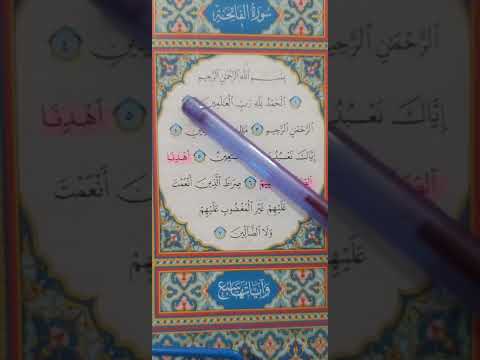 سورة الفاتحة
بِسْمِ اللَّهِ الرَّحْمَٰنِ الرَّحِيمِ
الْحَمْدُ لِلَّهِ رَبِّ الْعَالَمِينَ
الرَّحْمَٰنِ الرَّحِيمِ ٣
إِيَّاكَ نَعْبُدُ ٥ اهْدِنَا
٦ صِرَاطَ الَّذِينَ أَنْعَمْتَ
عَلَيْهِمْ غَيْرِ الْمَغْضُوبِ عَلَيْهِمْ
وَلَا الضَّالِّينَ ٧
وآياتها سبع